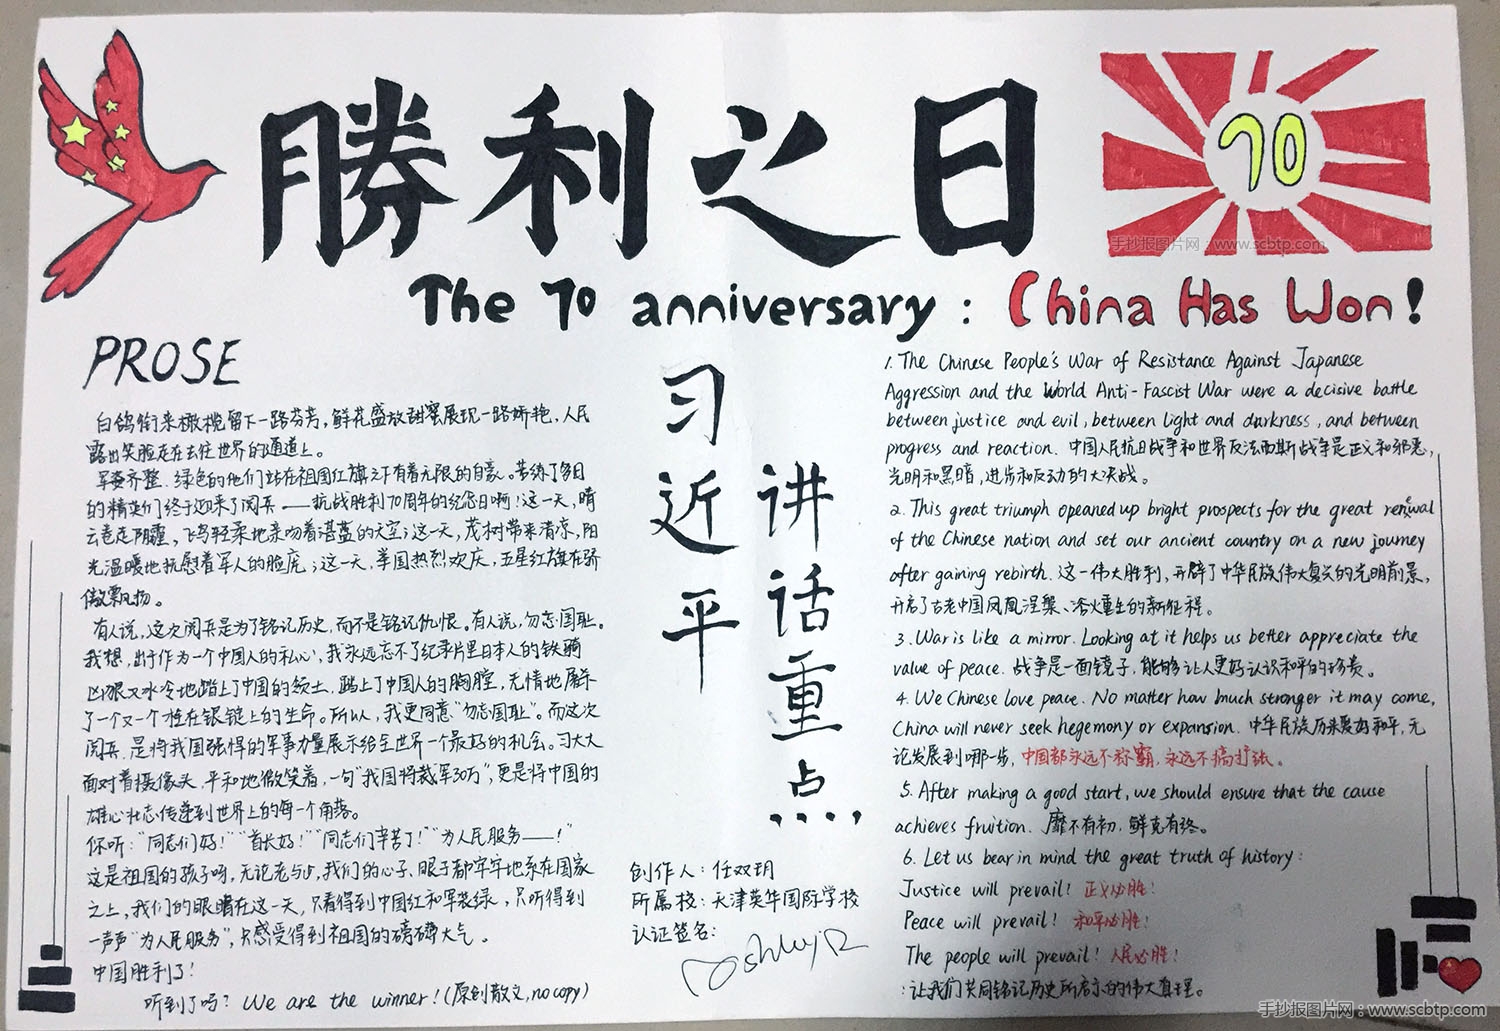 勝利之日
70
手抄报图片网：www.scbtp.com
The 70 anniversary : China Has Won!
PROSE
白鸽衔来橄榄留下一路芬芳，鲜花盛放甜蜜展现一路娇艳，人民
露出笑脸走在去往世界的通道上。
军姿齐整、绿色的他们站在祖国红旗之下有着无限的自豪。苦练了多日
的精英们终于迎来了阅兵——抗战胜利70周年的纪念日啊！这一天，晴
云卷走阴霾，飞鸟轻柔地亲吻着湛蓝的天空；这一天，茂树带来清凉，阳
光温暖地抚慰着军人的脸庞；这一天，举国热烈欢庆，五星红旗在骄
傲飘扬。
有人说，这次阅兵是为了铭记历史，而不是铭记仇恨。有人说，勿忘国耻。
我想，出于作为一个中国人的私心，我永远忘不了纪录片里日本人的铁骑
凶狠又冰冷地踏上了中国的领土，踏上了中国人的胸膛，无情地屠杀
了一个又一个拴在银锭上的生命。所以，我更同意“勿忘国耻”。而这次
阅兵，是将我国强悍的军事力量展示给全世界一个最好的机会。习大大
面对着摄像头，平和地微笑着，一句“我国将裁军30万”，更是将中国的
雄心壮志传递到世界上的每一个角落。
你听：“同志们好！”“首长好！”“同志们辛苦了！”“为人民服务——！”
这是祖国的孩子呀，无论老与少，我们的心子、眼子都牢牢地系在国家
之上，我们的眼睛在这一天，只看得到中国红和军装绿，只听得到
一声声“为人民服务”，只感受得到祖国的磅礴大气。
中国胜利了！
听到了吗？We are the winner!（原创散文，no copy）
习近平
讲话重点....
创作人：任双玥
所属校：天津英华国际学校
认证签名：
1. The Chinese People's War of Resistance Against Japanese
Aggression and the World Anti-Fascist War were a decisive battle
between justice and evil, between light and darkness, and between
progress and reaction. 中国人民抗日战争和世界反法西斯战争是正义和邪恶，
光明和黑暗，进步和反动的大决战。
2. This great triumph opeaned up bright prospects for the great renewal
of the Chinese nation and set our ancient country on a new journey
after gaining rebirth. 这一伟大胜利，开辟了中华民族伟大复兴的光明前景，
开启了古老中国凤凰涅槃、浴火重生的新征程。
3. War is like a mirror. Looking at it helps us better appreciate the
value of peace. 战争是一面镜子，能够让人更好认识和平的珍贵。
4. We Chinese love peace. No matter how much stronger it may come,
China will never seek hegemony or expansion. 中华民族历来爱好和平，无
论发展到哪一步，中国都永远不称霸，永远不搞扩张。
5. After making a good start, we should ensure that the cause
achieves fruition. 靡不有初，鲜克有终。
6. Let us bear in mind the great truth of history:
Justice will prevail! 正义必胜！
Peace will prevail! 和平必胜！
The people will prevail! 人民必胜！
：让我们共同铭记历史所启示的伟大真理。
手抄报图片网：www.scbtp.com